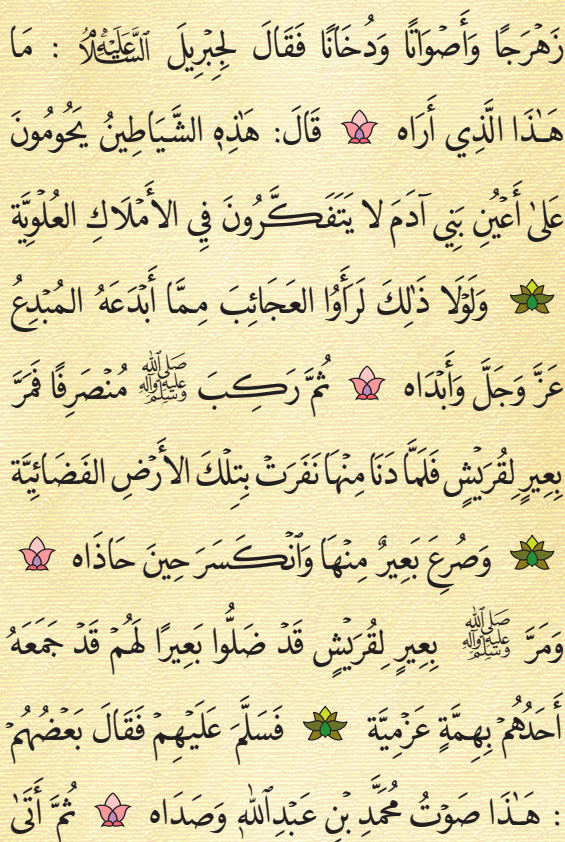 زَهْرَجًا وَأَصْوَاتًا وَدُخَانًا فَقَالَ لِجِبْرِيلَ عَلَيْهِ السَّلَامُ : مَا
هَـٰذَا الَّذِي أَرَاه قَالَ: هَٰذِهِ الشَّيَاطِينُ يَحُومُونَ
عَلَىٰ أَعْيُنِ بَنِي آدَمَ لا يَتَفَكَّرُونَ فِي الأَمْلَاكِ العُلْوِيَّة
وَلَوْلَا ذَٰلِكَ لَرَأَوُا العَجَائِبَ مِمَّا أَبْدَعَهُ المُبْدِعُ
عَزَّ وَجَلَّ وَأَبْدَاه ثُمَّ رَكِبَ ﷺ مُنْصَرِفًا فَمَرَّ
بِعِيرٍ لِقُرَيْشٍ فَلَمَّا دَنَا مِنْهَا نَفَرَتْ بِتِلْكَ الأَرْضِ الفَضَائِيَّة
وَصُرِعَ بَعِيرٌ مِنْهَا وَٱنْكَسَرَ حِينَ حَاذَاه
وَمَرَّ ﷺ بِعِيرٍ لِقُرَيْشٍ قَدْ ضَلُّوا بَعِيرًا لَهُمْ قَدْ جَمَعَهُ
أَحَدُهُمْ بِهِمَّةٍ عَزْمِيَّة فَسَلَّمَ عَلَيْهِمْ فَقَالَ بَعْضُهُمْ
: هَـٰذَا صَوْتُ مُحَمَّدِ بْنِ عَبْدِٱللّٰهِ وَصَدَاه ثُمَّ أَتَىٰ